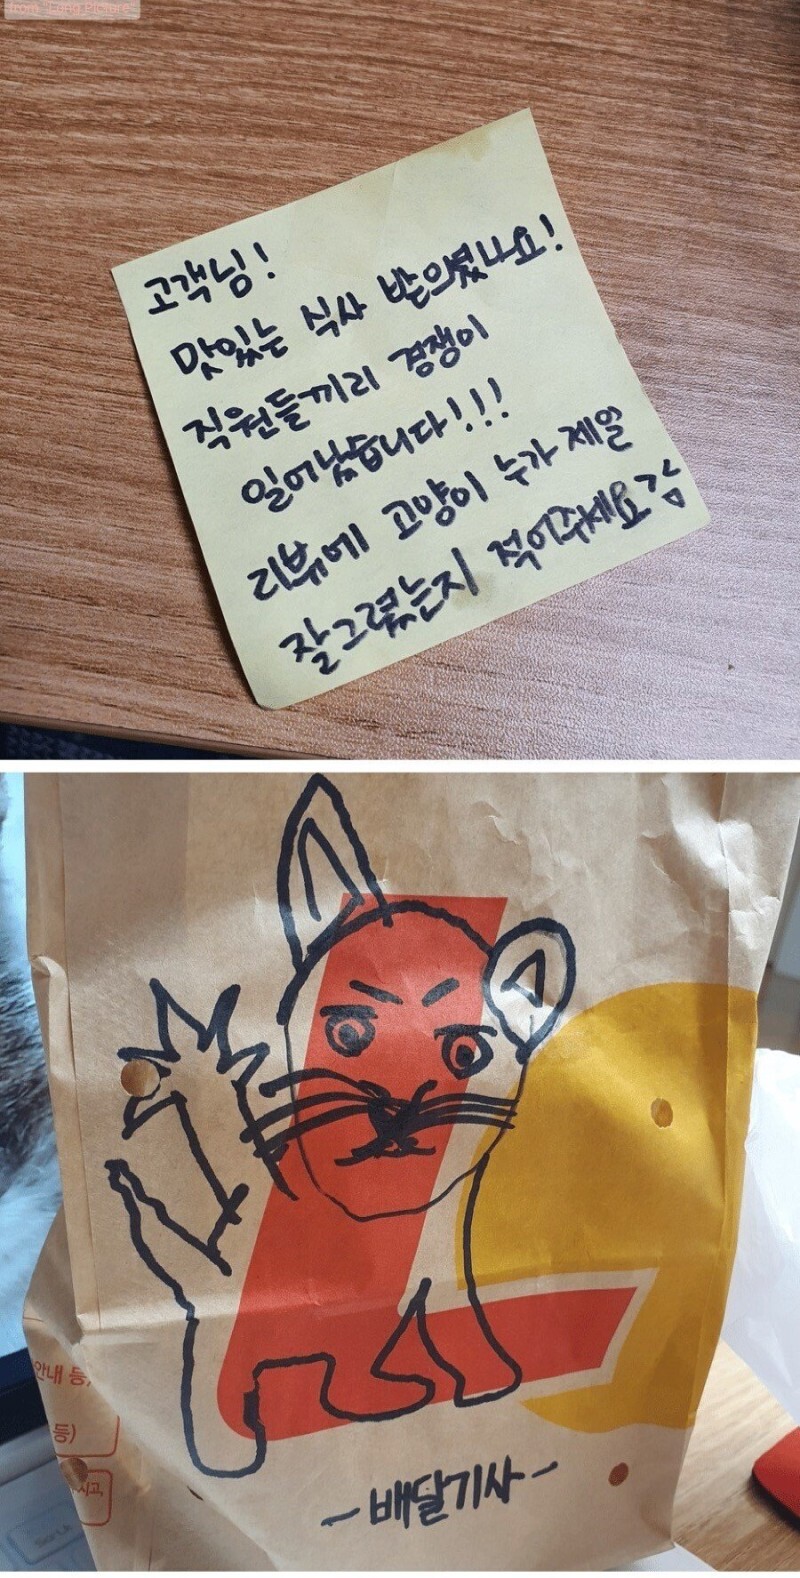 from 'Long Picture'
고객님!
맛있는 식사 받으셨나요!
직원들끼리 경쟁이
일어났습니다!!!
리뷰에 고양이 누가 제일
잘그렸는지 적어주세요
안내 등,
등)
시고,
- 배달기사 -